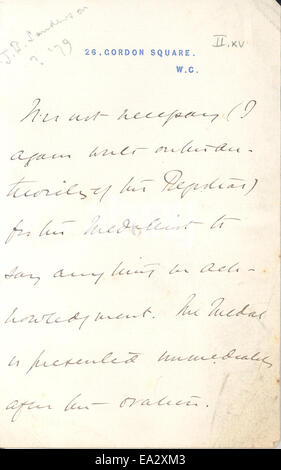 J. B. Sanderson
? '79
II.xv
26, GORDON SQUARE.
W.C.
It is not necessary (I
again write on the au-
thority of the Registrar)
for the Medallist to
say anything in ack-
nowledgment. The Medal
is presented immediately
after the oration.
alamy
EA2XM3